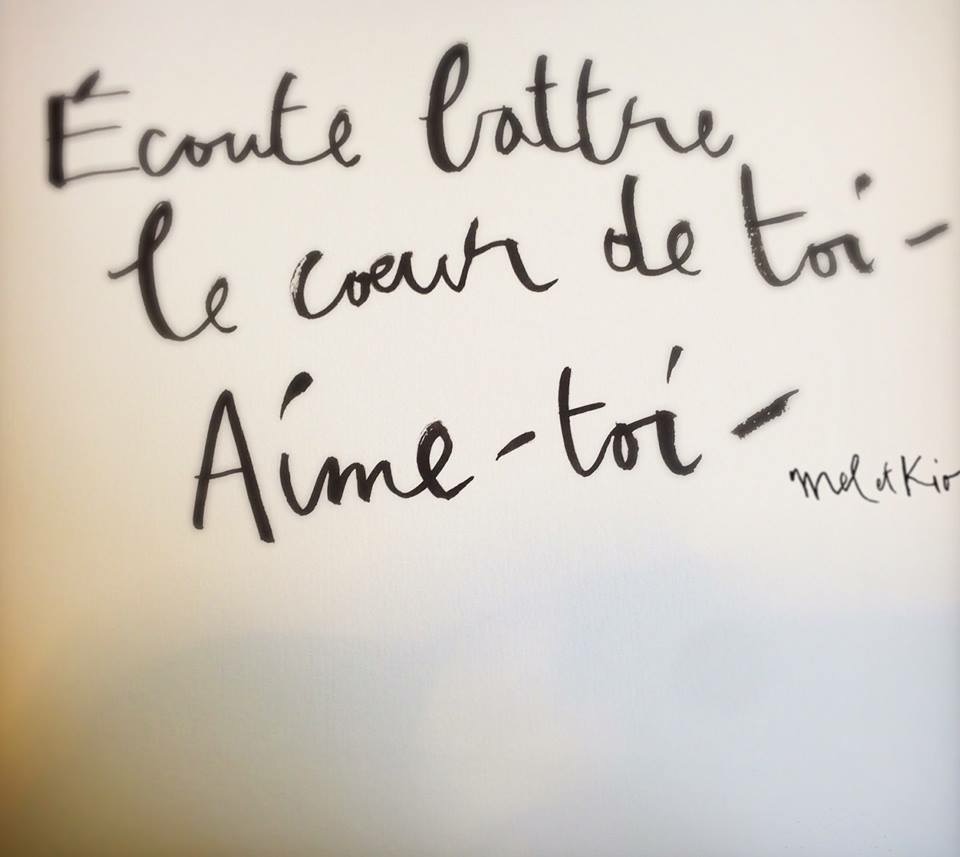 Écoute battre
le cœur de toi -
Aime-toi -
Mel et Kio